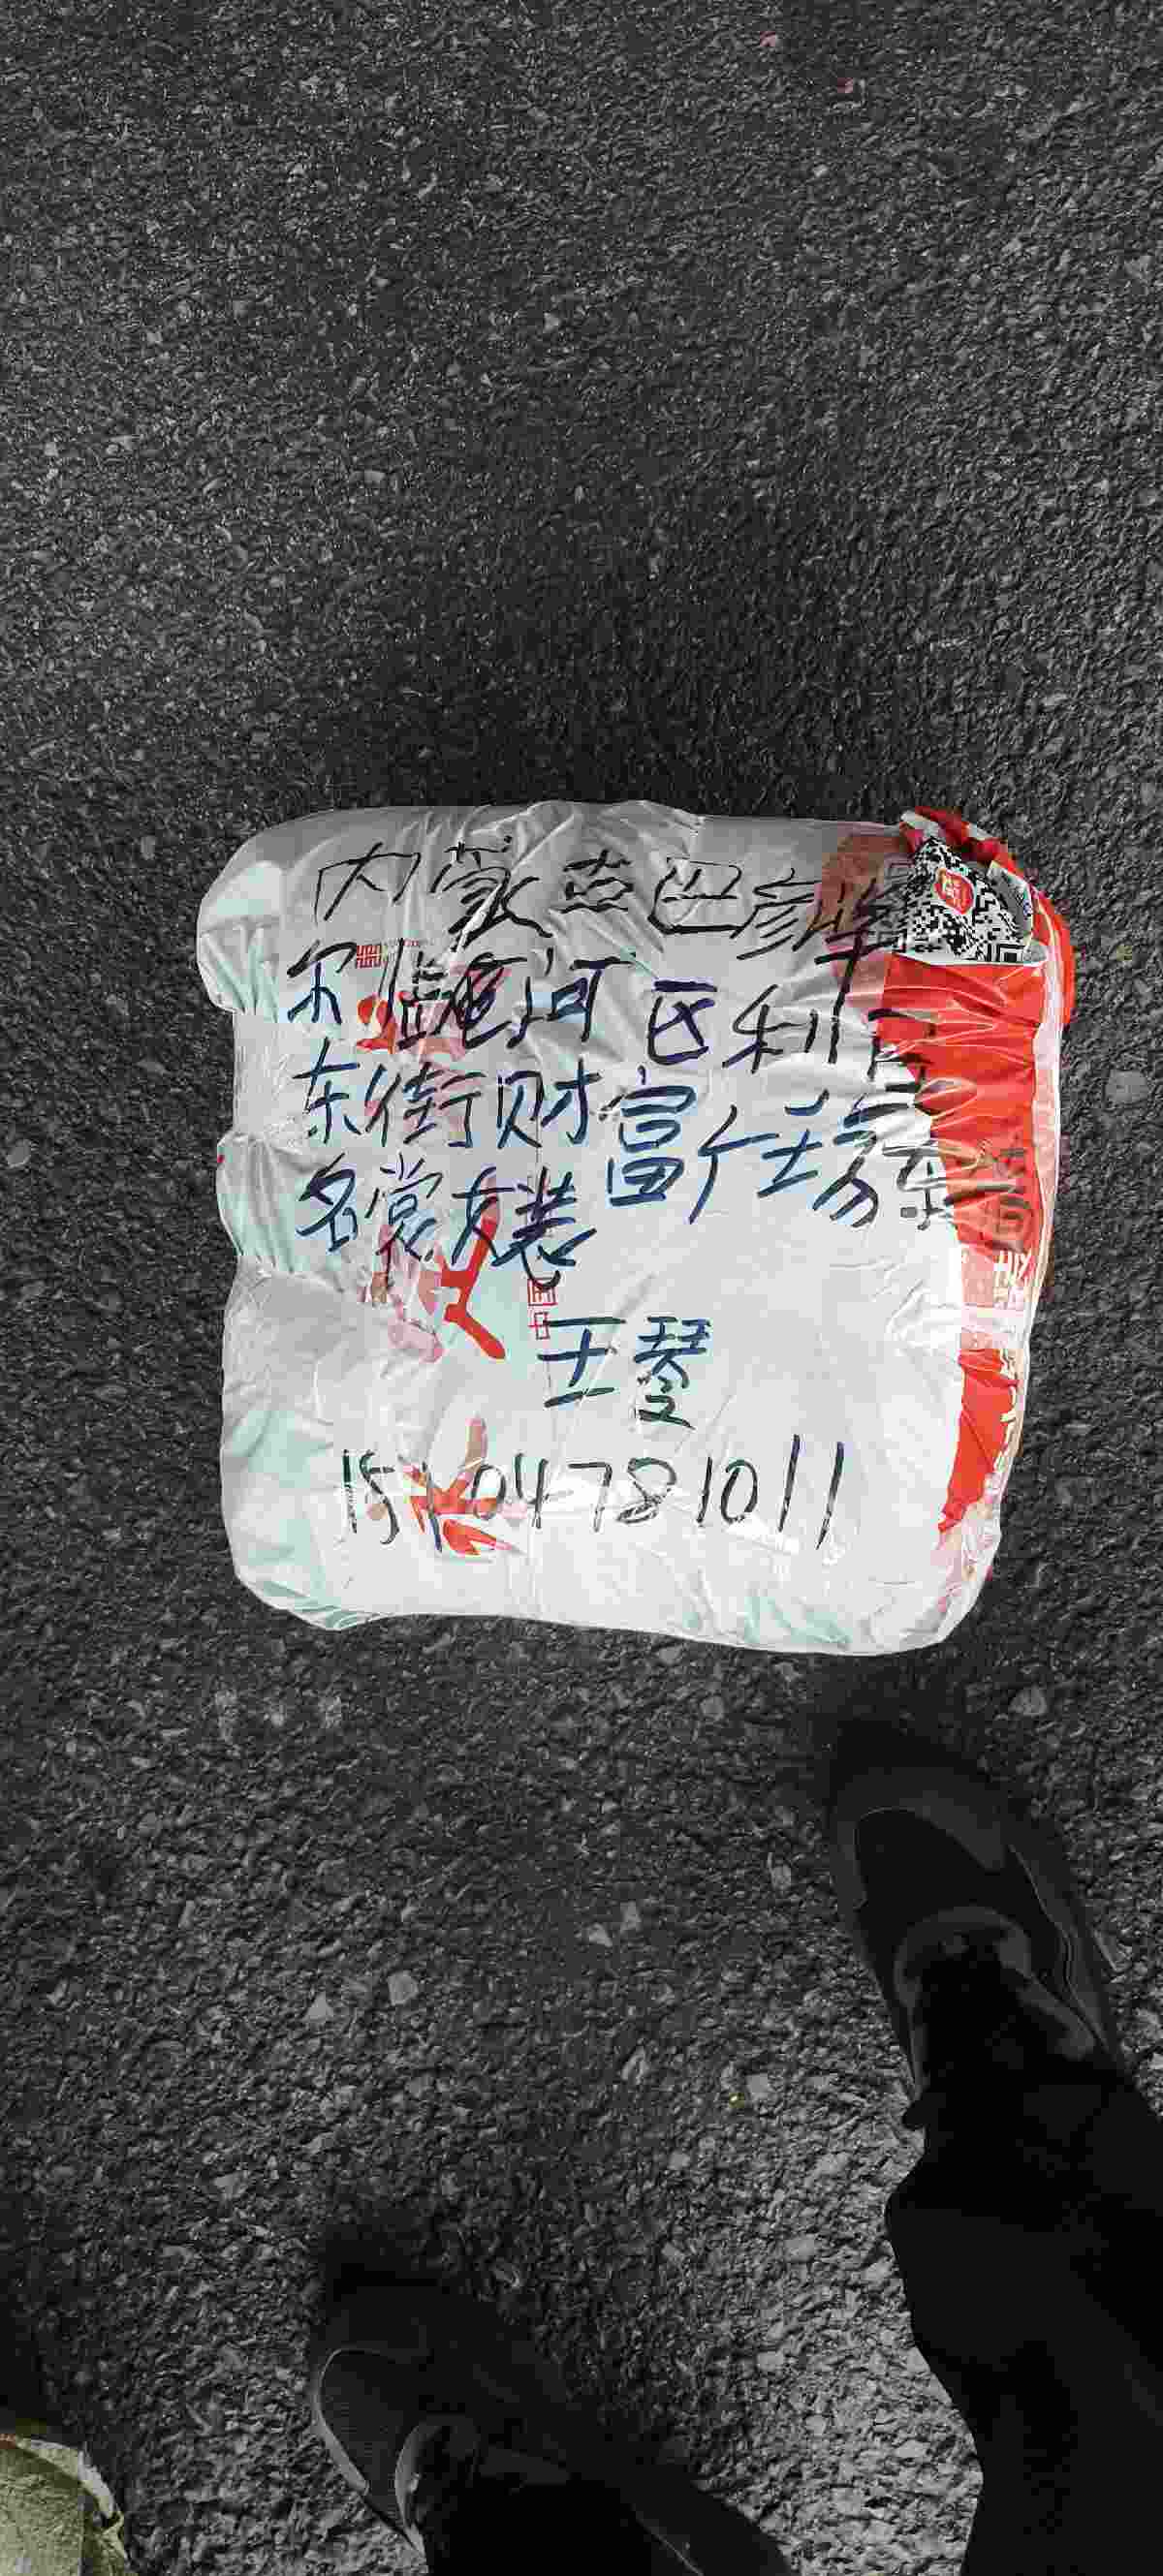 内蒙古巴彦淖
尔临河区利民
东街财富任易乐
名裳女装
王琴
15104781011